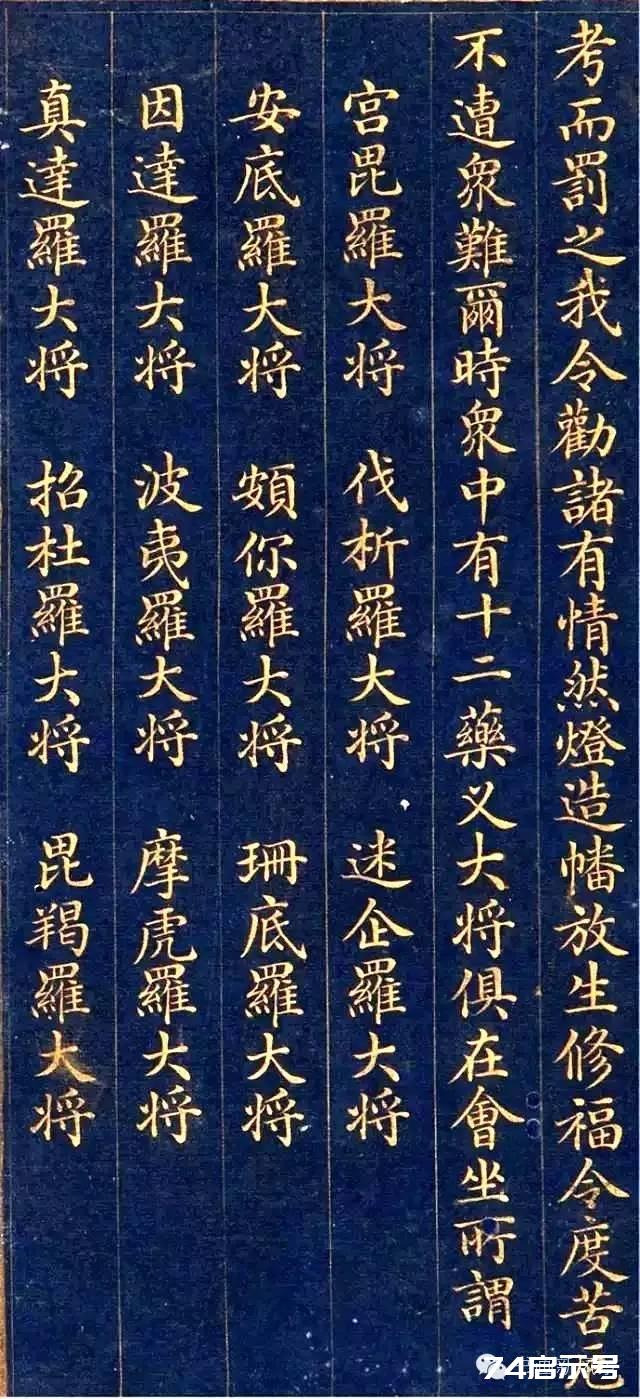 考而罰之我今勸諸有情然燈造幡放生修福令度苦厄
不遭衆難爾時衆中有十二藥叉大将俱在會坐所謂
宫毘羅大将 伐折羅大将 迷企羅大将
安底羅大将 頞你羅大将 珊底羅大将
因達羅大将 波夷羅大将 摩虎羅大将
真達羅大将 招杜羅大将 毘羯羅大将